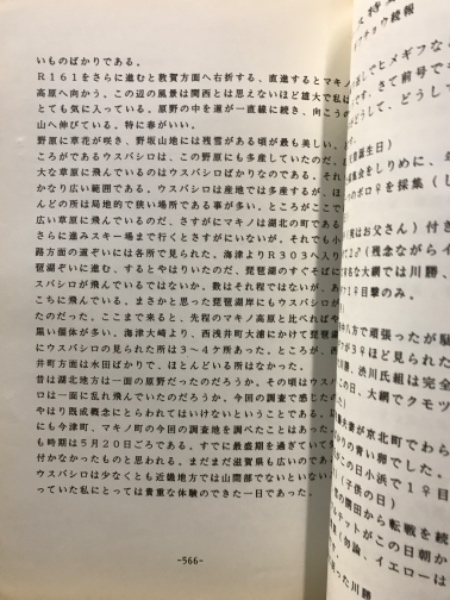 いものばかりである。
R161をさらに進むと敦賀方面へ右折する、直進するとマキノ
高原へ向かう。この辺の風景は関西とは思えないほど雄大で私は
とても気に入っている。原野の中を道が一直線に続き、向こうの
山へ伸びている。特に春がいい。
野原に草花が咲き、野坂山地には残雪がある頃が最も美しい。
ころがであるウスバシロは、この野原にも多産していたのだ。
大な草原に飛んでいるのはウスバシロばかりなのである。それ
かなり広い範囲である。ウスバシロは産地では多産するが、ほ
んどの所は局地的で狭い場所である事が多い。ところがここで
広い草原に飛んでいるのだ、さすがにマキノは湖北の町である
さらに進みスキー場まで行くとさすがにいないが、それでも小
路方面の道ぞいには各所で見られた。海津よりR303へ入り
琵琶湖ぞいに進む、するとやはりいたのだ、琵琶湖のすぐそば
スバシロが飛んでいるではないか。数はそれ程ではないが、あ
こちに飛んでいる。まさかと思った琵琶湖岸にもウスバシロが
たのだった。ここまで来ると、先程のマキノ高原と比べればや
黒い個体が多い。海津大崎より、西浅井町大浦にかけて琵琶
にウスバシロの見られた所は3～4ケ所あった。ところが、西
井町方面は水田ばかりで、ほとんどいる所はなかった。
昔は湖北地方は一面の原野だったのだろうか。その頃はウスバ
ロは一面に乱れ飛んでいたのだろうか。今回の調査で感じたの
やはり既成概念にとらわれてはいけないということである。以
にも今津町、マキノの今回の調査地を調べたことはあった。
も時期は5月20日ごろである。すでに最盛期を過ぎていて
付かなかったものと思われる。まだまだ滋賀県も広いのであ
ウスバシロは少なくとも近畿地方では山間部でないといない
っていた私にとっては貴重な体験のできた一日であった。
-566-
特
チョウ続報
出しでヒメギフな
です。さて前号で
がどうして、どうして
誕生日)
集会をしりめに、
のボロ♀を採集(し
はお父さん)付き
て2♂(残念ながらイ
名な大網では川勝、
1♀目撃のみ。
中八方で頑張ったが
が3♀ほど見られた
勝、渋川氏組は完全
この日、大網でクモツ
夫妻が京北町でわら
りの青い卵でした。
がこの日小浜で1♀目
(子供の日)
の開田から転戦を続
テットがこの日朝か
(勿論、イエローは
った川勝